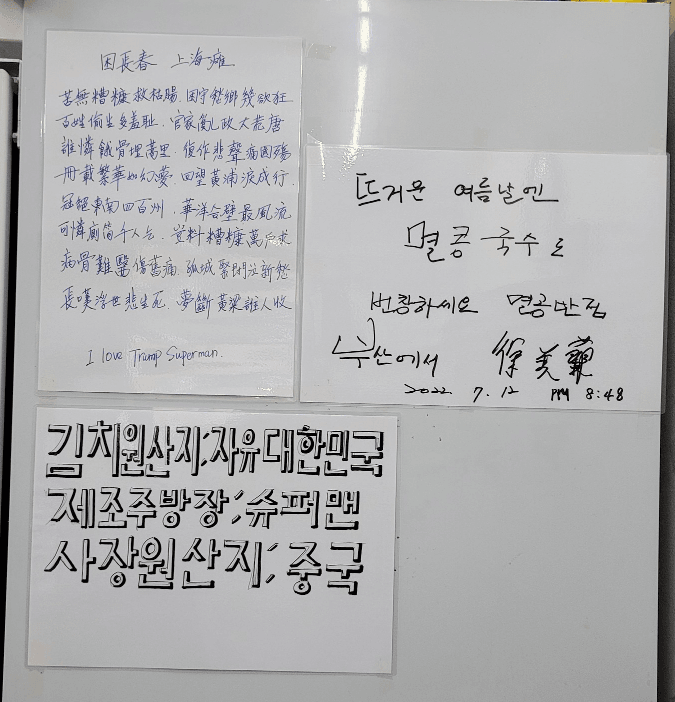 困長春 上海癱
苦無糟糠救枯腸.困守愁鄉幾欲狂
百姓偷生多羞耻.官家亂政大荒唐
誰憐餓骨埋萬里.復作悲聲病國殤
卌載繁華如幻夢.回望黃浦淚成行.
冠絕東南四百洲.華洋合壁最風流
可憐廁筒千人乞.豈料糟糠萬戶求
病骨難醫傷舊痛.孤城緊閉泣新愁
長嘆浮世悲生死.夢斷黃粱誰人收
I love Trump Superman.
뜨거운 여름날엔
멸콩 국수로
번창하세요 멸공반점
부산에서 徐美蘭
2022. 7. 12 PM 8:48
김치원산지:자유대한민국
제조주방장:슈퍼맨
사장원산지:중국